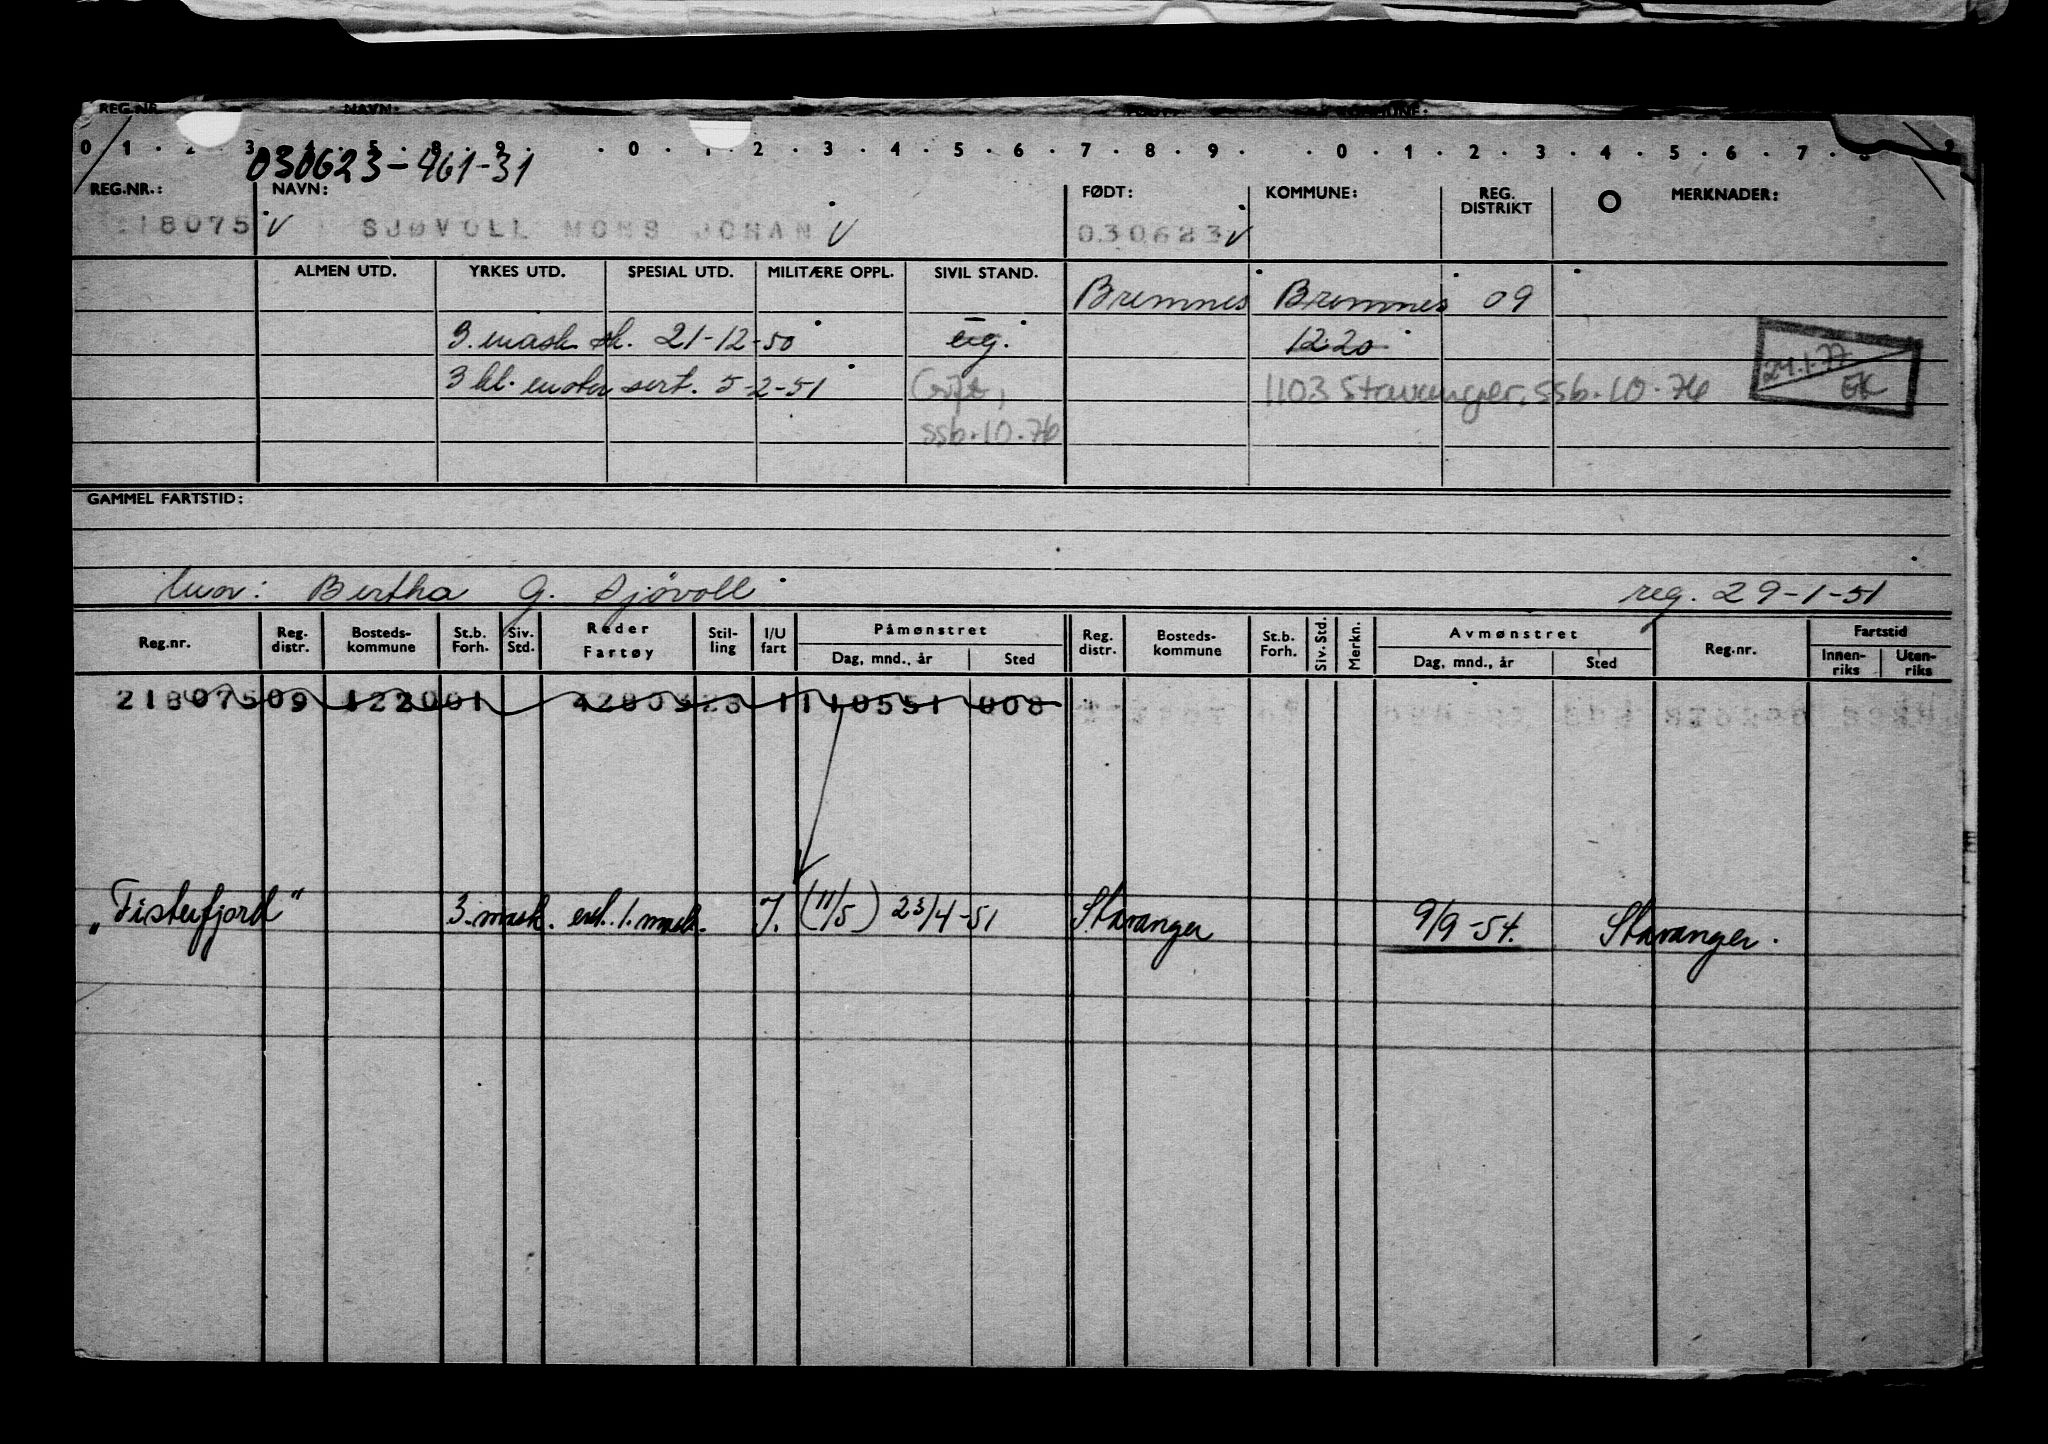 REG.NR. NAVN: KOMMUNE:
0 1 2 3 4 5 8 9 0 1 2 3 4 5 6 7 8 9 0 1 2 3 4 5 6 7
030623-461-31
REG.NR.: NAVN: FØDT: KOMMUNE: REG. DISTRIKT MERKNADER:
218075 SJØVOLL MONS JOHAN 030623
ALMEN UTD. YRKES UTD. SPESIAL UTD. MILITÆRE OPPL. SIVIL STAND.
Bremnes Bremnes 09
3. mask sk. 21-12-50 ug. 1220
3 kl. motor sert. 5-2-51 Gift, 1103 Stavanger, ssb. 10.76
24.1.77 EK
ssb. 10.76
GAMMEL FARTSTID:
mor: Bertha G. Sjövoll reg. 29-1-51
Reg.nr. Reg. distr. Bosteds-kommune St.b. Forh. Siv. Std. Reder Fartøy Stil-ling I/U fart Påmønstret Dag, mnd., år Sted Reg. distr. Bosteds-kommune St.b. Forh. Siv. Std. Merkn. Avmønstret Dag, mnd., år Sted Reg.nr. Fartstid Innen-riks Uten-riks
218075 09 1220 01 42803 23 1 110551 008
"Fisterfjord" 3. mask. end. 1. mask. 7. (11/5) 23/4-51 Stavanger 9/9-54. Stavanger.